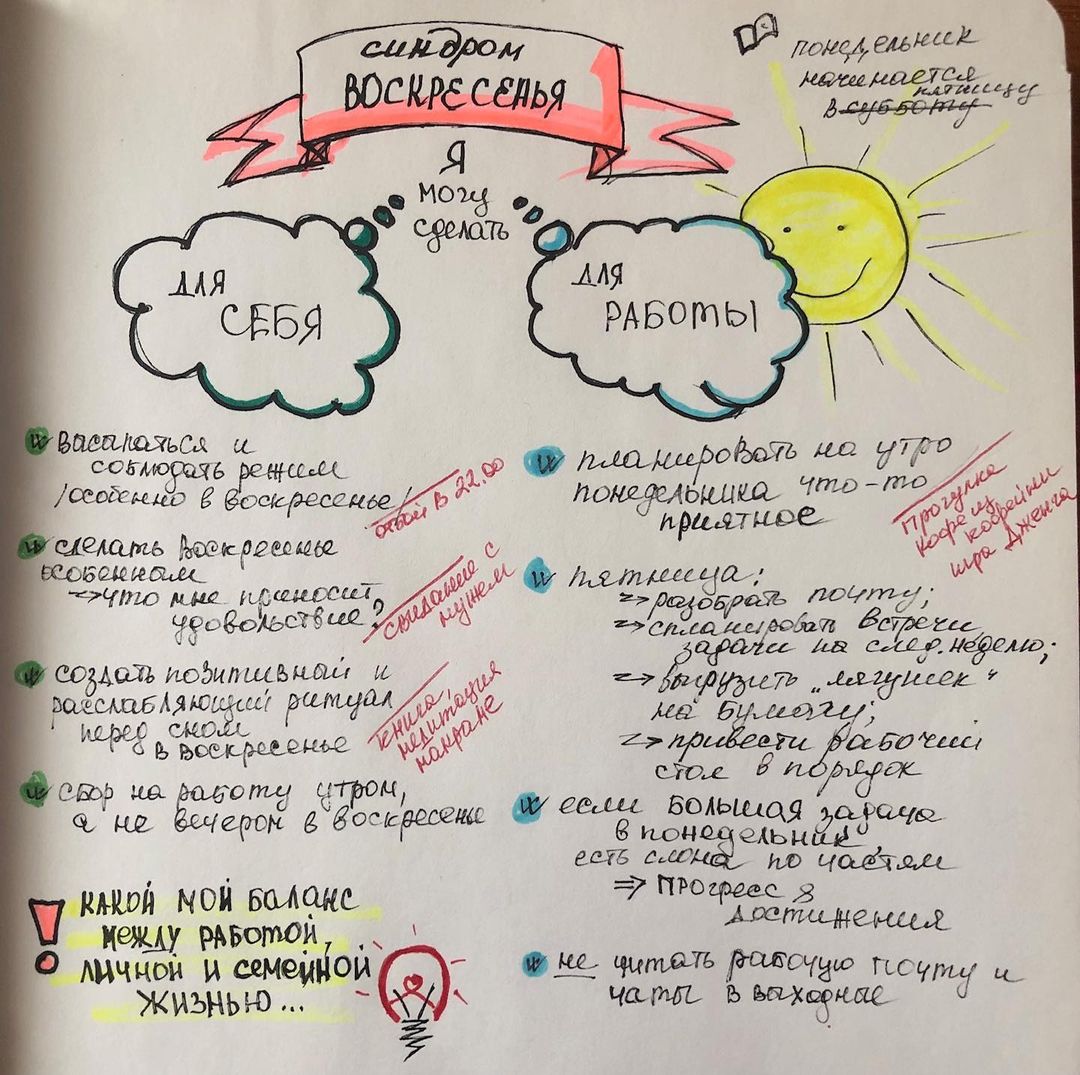 синдром
ВОСКРЕСЕНЬЯ
понедельник
начинается
пятницу
в субботу
Я
могу
сделать
ДЛЯ
СЕБЯ
ДЛЯ
РАБОТЫ
высыпаться и
соблюдать режим
/особенно в воскресенье/
отбой в 22.00
сделать воскресенье
особенным
→ что мне приносит
удовольствие?
свидание с
мужем
создать позитивный и
расслабляющий ритуал
перед сном
в воскресенье
медитация
сбор на работу утром,
а не вечером в воскресенье
! КАКОЙ МОЙ БАЛАНС
МЕЖДУ РАБОТОЙ,
ЛИЧНОЙ И СЕМЕЙНОЙ
ЖИЗНЬЮ...
планировать на утро
понедельника что-то
приятное
Прогулка
кофе из
кофейни
игра Дженга
пятница:
→ разобрать почту;
→ спланировать встречи
задачи на след. неделю;
→ выгрузить „лягушек"
на бумагу;
→ привести рабочий
стол в порядок
если большая задача
в понедельник
есть слона по частям
⇒ прогресс &
достижения
не читать рабочую почту и
чаты в выходные